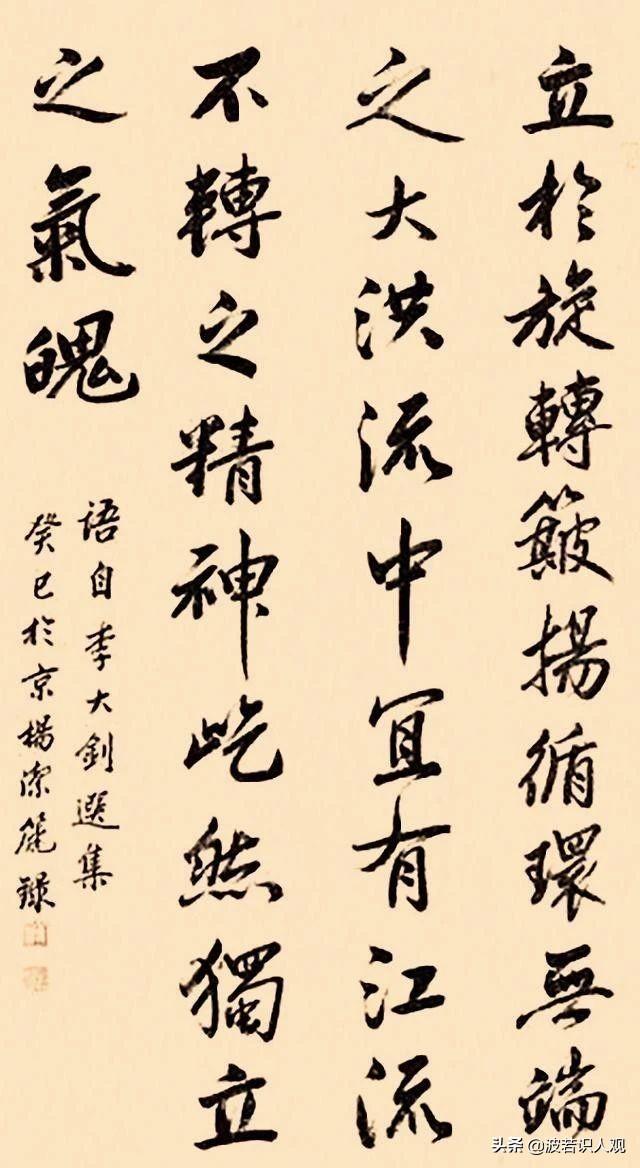 立於旋轉簸揚循環無端
之大洪流中宜有江流
不轉之精神屹然獨立
之氣魄
语自李大釗選集
癸巳於京楊潔篪録
头条 @波若识人观